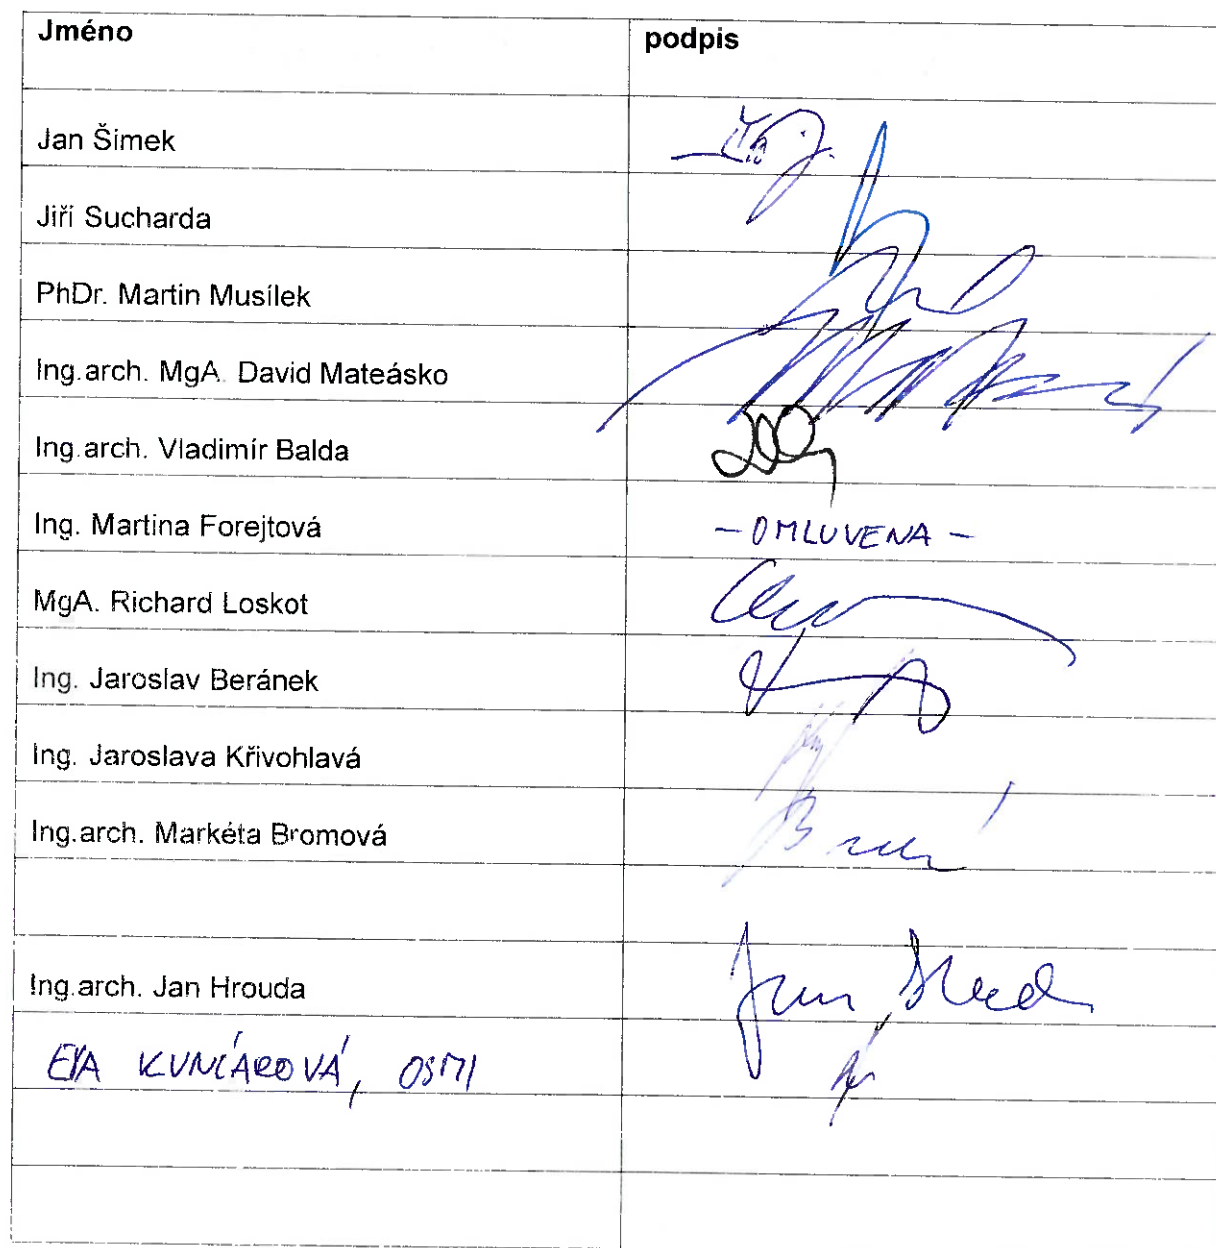 Jméno podpis
Jan Šimek
Jiří Sucharda
PhDr. Martin Musílek
Ing.arch. MgA. David Mateásko
Ing.arch. Vladimír Balda
Ing. Martina Forejtová - OMLUVENA -
MgA. Richard Loskot
Ing. Jaroslav Beránek
Ing. Jaroslava Křivohlavá
Ing.arch. Markéta Bromová
Ing.arch. Jan Hrouda
EVA KUNČAROVÁ, OSMI